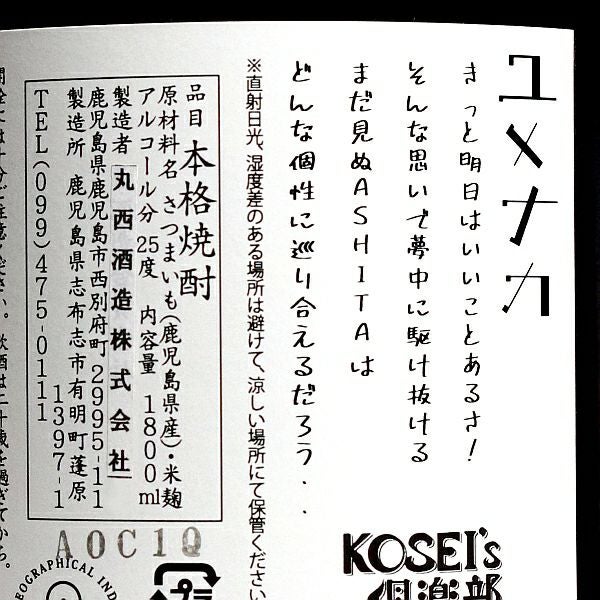 ユメナカ
きっと明日はいいことあるさ!
そんな思いで夢中に駆け抜ける
まだ見ぬASHITAは
どんな個性に巡り合えるだろう・・
KOSEI's
倶楽部
※直射日光、湿度差のある場所は避けて、涼しい場所にて保管ください
品目 本格焼酎
原材料名 さつまいも(鹿児島県産)・米麹
アルコール分 25度 内容量 1800ml
製造者 丸西酒造株式会社
鹿児島県鹿児島市西別府町 2995-11
製造所 鹿児島県志布志市有明町蓬原
1397-1
TEL(099)475-0111
A0C1Q
EOGRAPHICAL IND
プラ